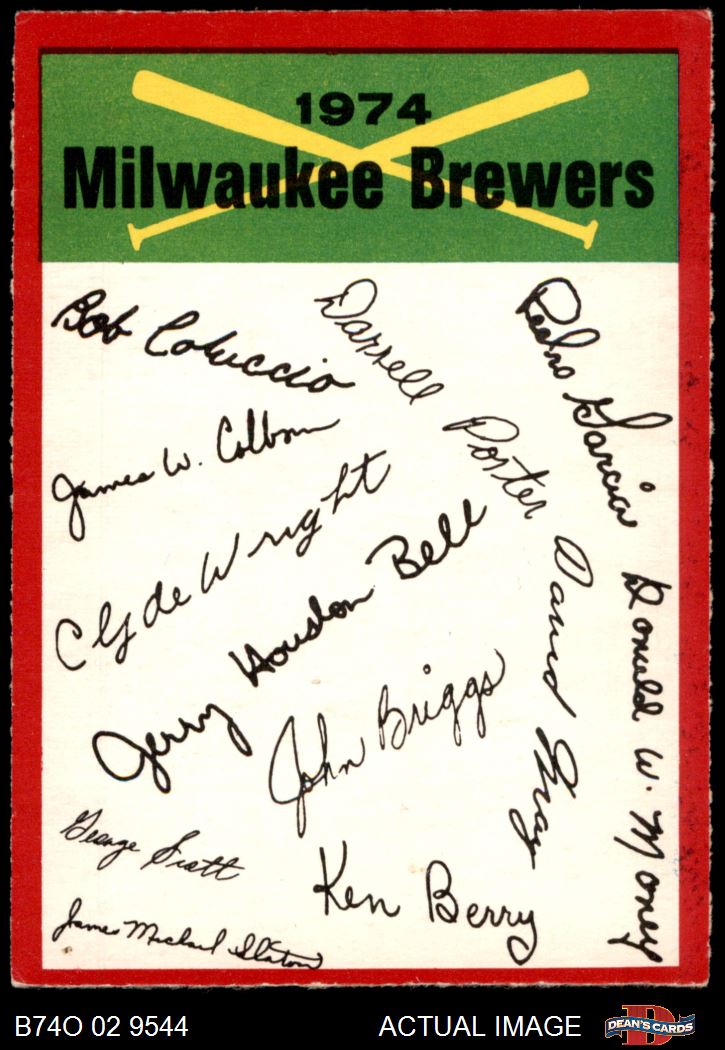 1974
Milwaukee Brewers
Bob Coluccio
Darrell Porter
Pedro Garcia
James W. Colborn
Clyde Wright
Jerry Houston Bell
David May
Donald W. Money
John Briggs
George Scott
Ken Berry
James Michael Slaton
B74O 02 9544
ACTUAL IMAGE
D
DEAN'S CARDS